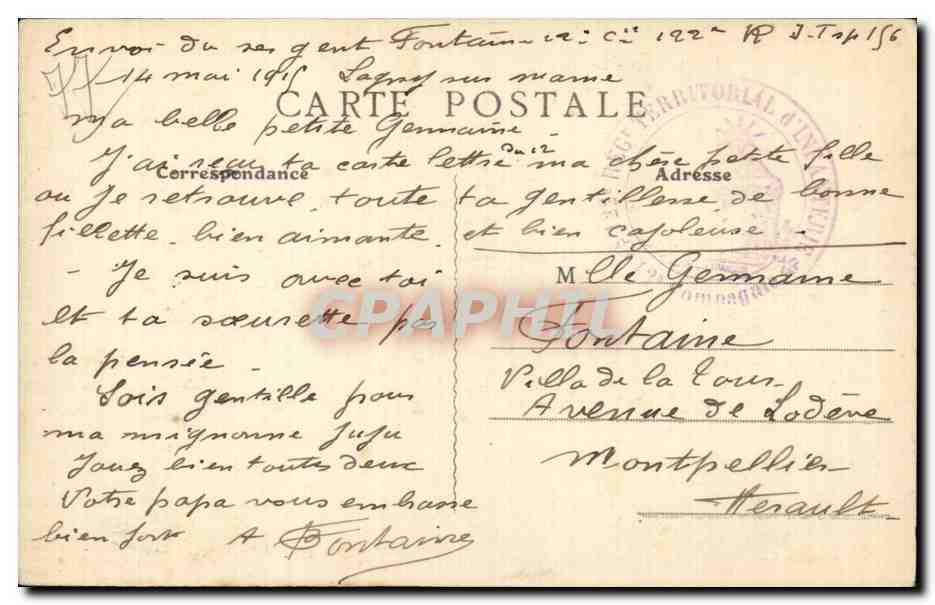 Envoi du sergent Fontaine 12e Cie 122e RIT sp 156
77
14 mai 1915 Lagny sur marne
CARTE POSTALE
ma belle petite Germaine -
J'ai reçu ta carte lettre du 12 ma chère petite fille
Correspondance
Adresse
ou je retrouve toute ta gentillesse de bonne
fillette bien aimante et bien cajoleuse -
- Je suis avec toi
et ta sœurette par
la pensée -
Sois gentille pour
ma mignonne Juju
Jouez bien toutes deux
Votre papa vous embrasse
bien fort A Fontaine
Mlle Germaine
Fontaine
Villa de la Tour
Avenue de Lodève
Montpellier
Herault
TERRITORIAL d'INFANTERIE
Compagnie
CPAPHIL